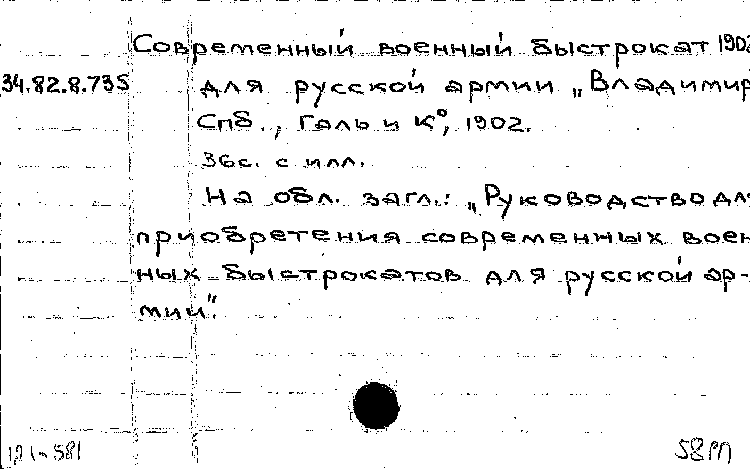 Современный военный быстрокат 1902
34.82.8.735 для русской армии „Владимир
Спб., Галь и К°, 1902.
36с. с илл.
На обл. загл.: „Руководство для
приобретения современных воен
ных быстрокатов для русской ар-
мии".
121-581